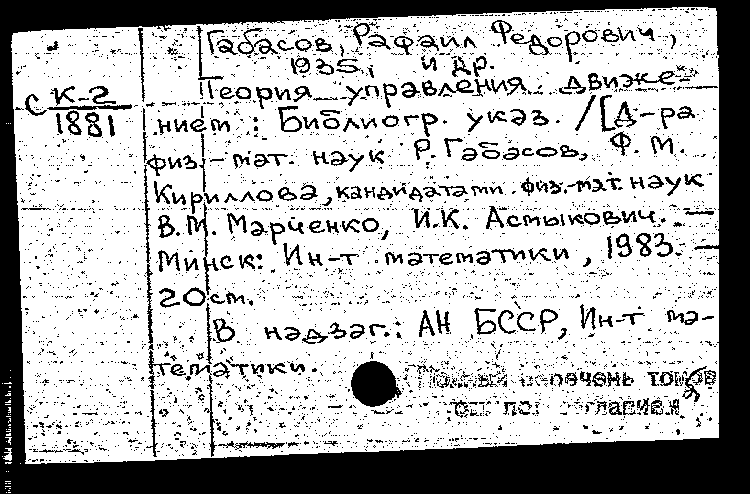 Габасов, Рафаил Федорович,
1935, и др.
Теория управления движе-
с К-2
1881
нием : Библиогр. указ. /[Д-ра
физ.-мат. наук Р. Габасов, Ф. М.
Кириллова, кандидатами физ.-мат. наук
В.М. Марченко, И.К. Астыкович. —
Минск: Ин-т математики, 1983. —
20 см.
В надзаг.: АН БССР, Ин-т ма-
тематики.
перечень томов
см. под заглавием